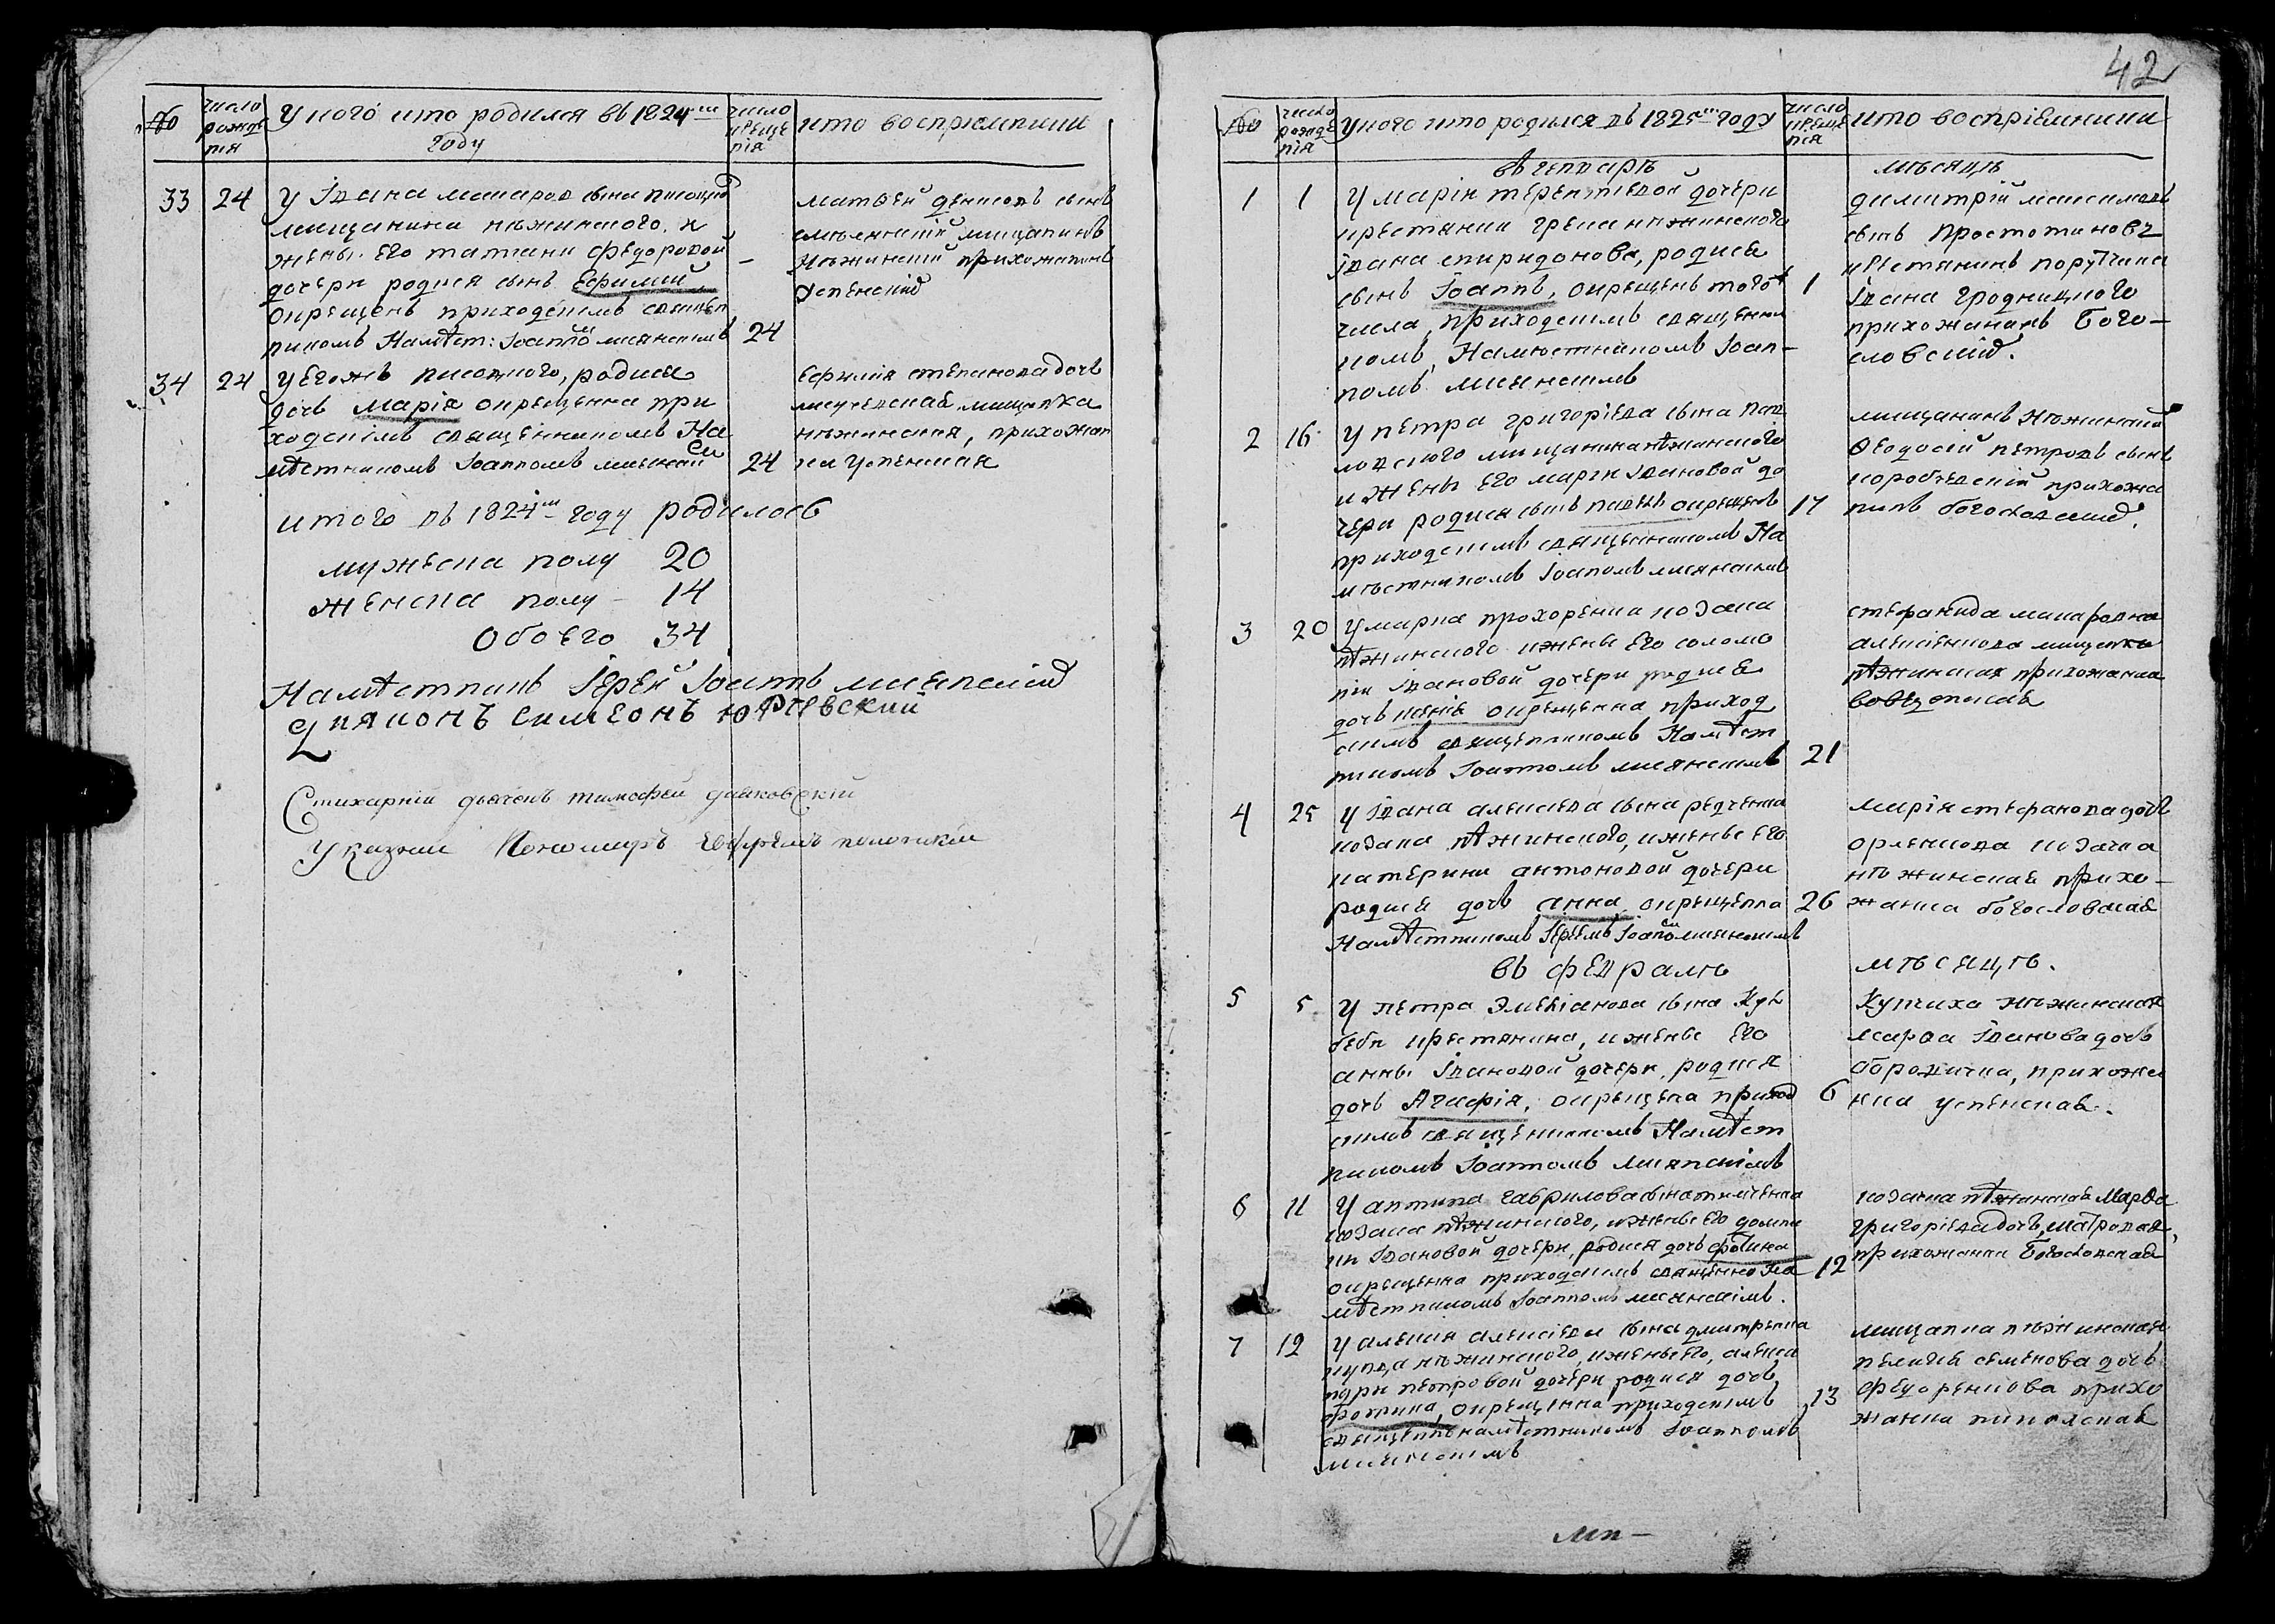 42
№
число рожде нія
У кого кто родился въ 1824м году
число креще нія
кто восприємники
33 24
У Івана макаров сына писоцко
мищанина нѣжинского и
жены его татіани федоровой
дочери родися сынъ Ефимій
окрещенъ приходскимъ священ
никомъ Намѣст: Іоанно миенскимъ 24
матѳей денисовъ сынъ
мищанинъ
Нѣжинскій прихожанинъ
Успенскій
34 24
У Егожъ писоцкого, родися
дочъ марія окрещенна при
ходскимъ священникомъ На
мѣстникомъ Іоанномъ 24
Ефимія степанова дочъ
мищанка
нѣжинская, прихожан
ка Успенская
итого въ 1824м году родилось
мужеска полу 20
женска полу 14
Обоего 34
Намѣстникъ Іерей Іоаннъ
Діяконъ Симеонъ Юркевский
Стихарній дьячокъ тимофей
Указний Пономаръ
№
число рожде нія
У кого кто родился въ 1825м году
число креще нія
кто воспріємники
въ генварѣ мѣсяцѣ
1 1
У маріи терентіевой дочери
крестянки грека нѣжинского
Івана спиридонова, родися
сынъ Іоаннъ, окрещенъ того 1
числа, приходскимъ священни
комъ, Намѣстникомъ Іоан-
номъ
димитрій максимовъ
сынъ
крестянинъ порутчика
Івана
прихожанинъ Бого-
словскій.
2 16
У петра григоріева сына пав
ловского мищанина нѣжинского
и жены его маріи Івановой до
чери родися сынъ окрещенъ 17
приходскимъ священникомъ На
мѣстникомъ Іоаномъ
мищанинъ Нѣжинскій
Ѳеодосій петровъ сынъ
прихожа
нинъ богословскій.
3 20
У марка прохоренка козака
нѣжинского и жены его соломо
ніи Івановой дочери родися
дочъ окрещенна приход
скимъ священникомъ Намѣст
никомъ Іоанномъ 21
стефанида макаровна
алексѣенкова мищанка
нѣжинская прихожанка
4 25
У Івана алексіева сына редченка
козака нѣжинского, и жены его
катерини антоновой дочери
родися дочъ анна окрещенна 26
Намѣстникомъ Іереемъ Іоанно
марія стефанова дочъ
орленкова козачка
нѣжинская прихо-
жанка богословская
въ февралѣ мѣсяцѣ.
5 5
У петра Эмеліанова сына
крестянина, и жены Его
анны Івановой дочери, родися
дочъ Агафія, окрещена приход 6
скимъ священникомъ Намѣст
никомъ Іоанномъ
Купчиха нѣжинская
марѳа Іванова дочъ
прихожа
нка успенская.
6 11
У антипа гаврилова сына
козака нѣжинского, и жены его домни
ки Івановой дочери, родися дочъ фотина
окрещенна приходскимъ священно На 12
мѣстникомъ Іоанномъ
козачка нѣжинская Марѳа
григоріева дочъ,
прихожанка Богословская
7 12
У алексія алексіева сына дмитренка
купца нѣжинского, и жены его, алекса
ндри петровой дочери родися дочъ
фотина, окрещенна приходскимъ 13
намѣстникомъ Іоанномъ
мищанка нѣжинская
пелагія семенова дочъ
федоренкова прихо
жанка